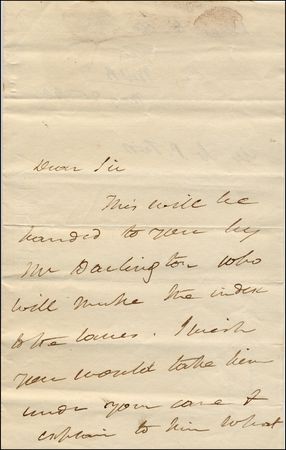 Dear Sir
This will be
handed to you by
Mr Darlington who
will make the index
to the laws. I wish
you would take him
under your care &
explain to him what